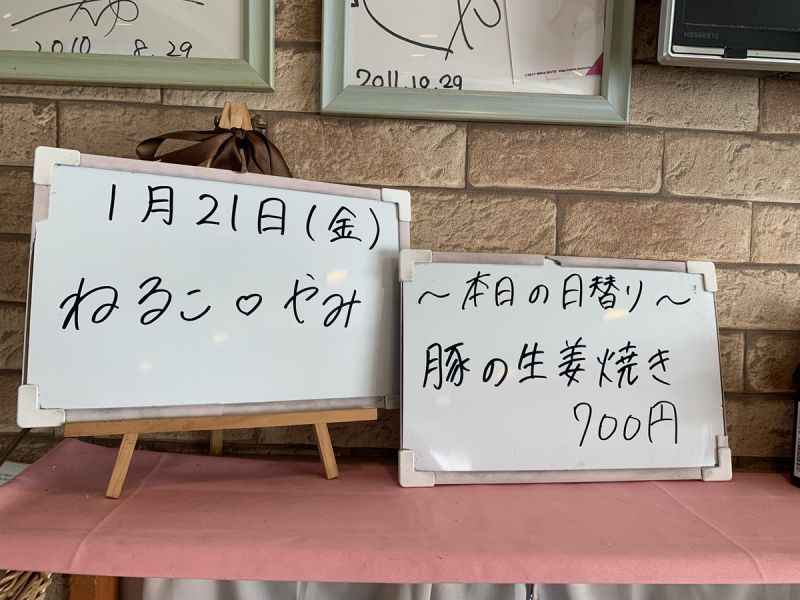 2010. 8.29
2011.10.29
HS50K610
1月21日(金)
ねるこ♡やみ
～本日の日替り～
豚の生姜焼き
700円